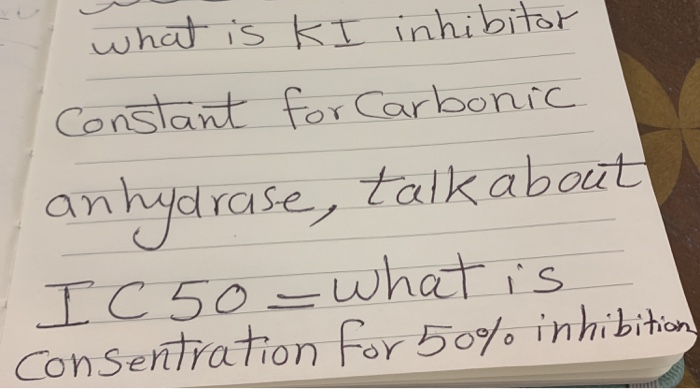 what is KI inhibitor
Constant for Carbonic
anhydrase, talk about
IC50 = what is
Consentration for 50% inhibition